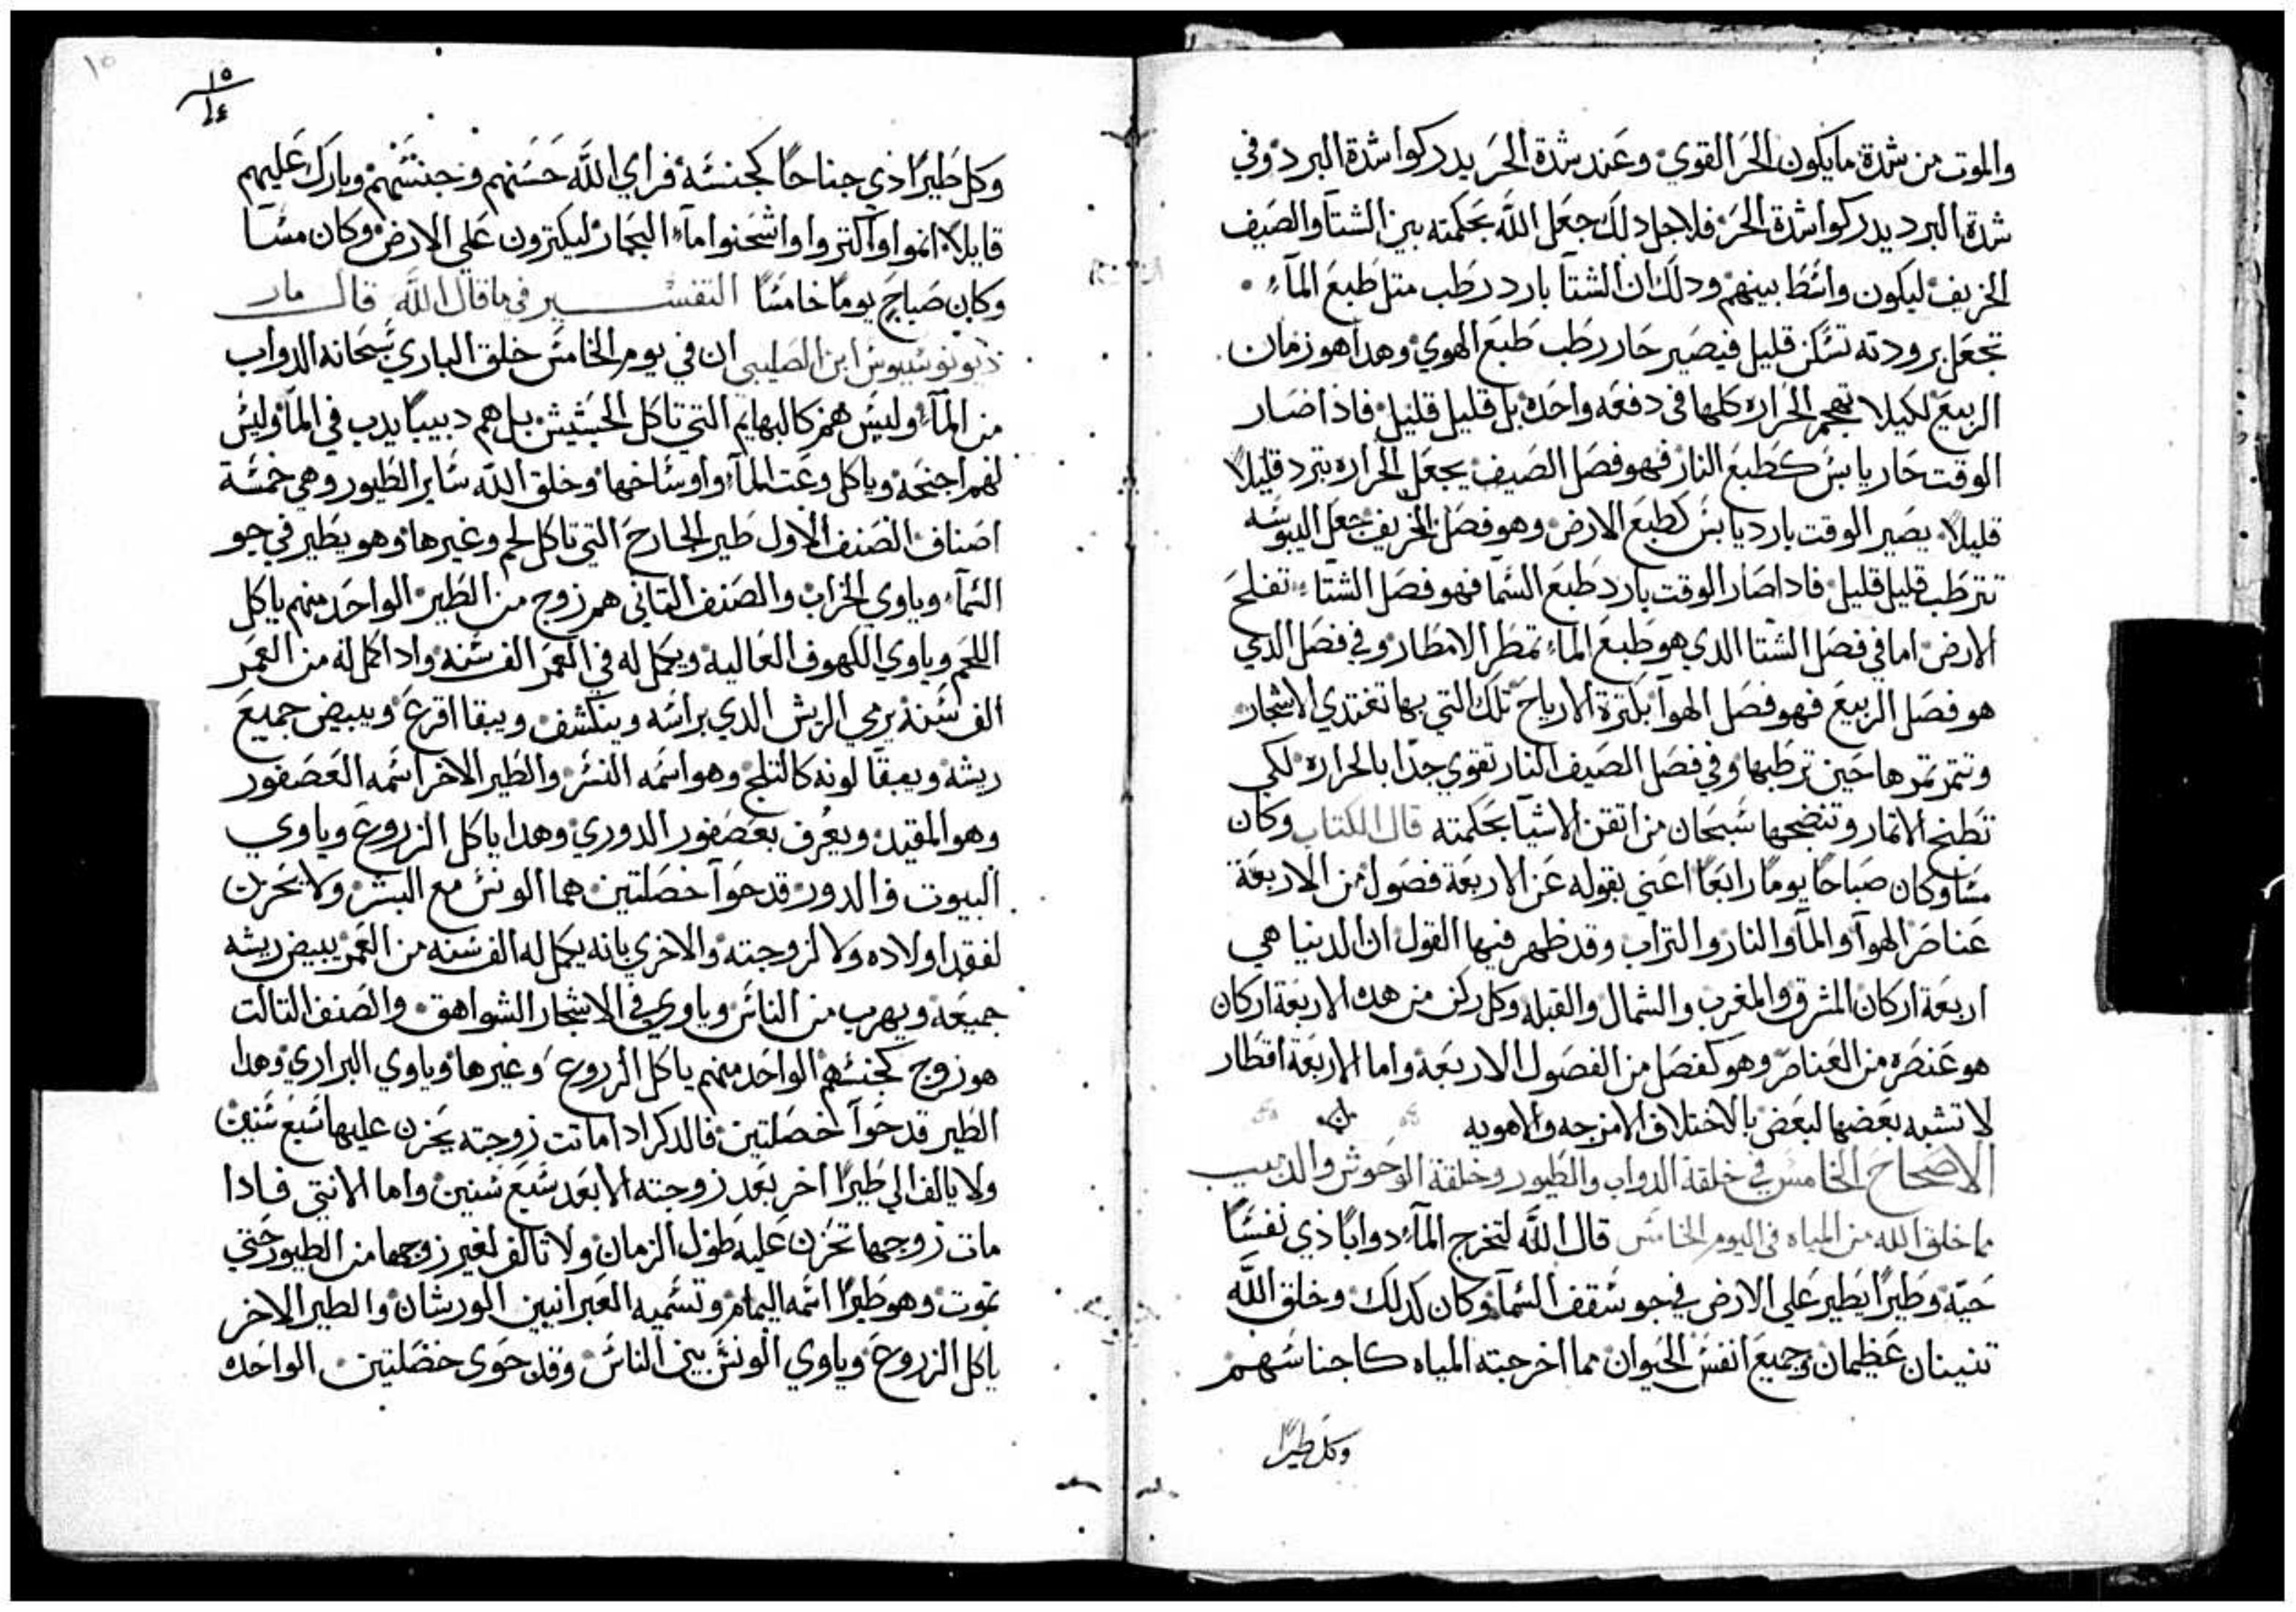 والموت من شدة ما يكون الحر القوي وعند شدة الحر يدركوا شدة البرد وفي
شدة البرد يدركوا شدة الحر فلاجل دلك جعل الله بحكمته بين الشتآ والصيف
الخريف ليكون واسط بينهم ودلك ان الشتا بارد رطب متل طبع المآء
تجعل برودته تسكن قليل فيصير حار رطب طبع الهوي وهدا هو زمان
الربيع لكيلا تهجم الحراره كلها في دفعه واحده بل قليل قليل فاذا صار
الوقت حار يابس كطبع النار فهو فصل الصيف يجعل الحراره تبرد قليلاً
قليلاً يصير الوقت بارد يابس كطبع الارض وهو فصل الخريف جعل اليبوسه
تترطب قليل قليل فادا صار الوقت بارد طبع السما فهو فصل الشتاء تفلح
الارض اما في فصل الشتا الدي هو طبع الماء تمطر الامطار وفي فصل الدي
هو فصل الربيع فهو فصل الهوآ بكترة الارياح تلك التي بها تغتدي الاشجار
وتتمر تمرها حين ترطبها وفي فصل الصيف النار تقوي جدّا بالحراره لكي
تطبخ الاتمار وتنضجها سبحان من اتقن الاشيا بحكمته قال الكتاب وكان
مسا وكان صباحاً يوماً رابعاً اعني بقوله عن الاربعة فصول من الاربعة
عناصر الهوآ والمآ والنار والتراب وقد ظهر فيها القول ان الدنيا هي
اربعة اركان المشرق والمغرب والشمال والقبله وكل ركن من هده الاربعة اركان
هو عنصره من العناصر وهو كفصل من الفصول الاربعة واما الاربعة اقطار
لا تشبه بعضها لبعض بالاختلاف الامزجه والاهويه
الاصحاح الخامس في خلقة الدواب والطيور وخلقة الوحوش والدبيب
ما خلق الله من المياه في اليوم الخامس قال الله لتخرج المآء دواباً ذي نفساً
حيّة وطيراً يطير علي الارض في جو سقف السمآ وكان كدلك وخلق الله
تنينان عظيمان وجميع انفس الحيوان مما اخرجته المياه كاجناسهم
وكل طيراً
١٥
١٥
١٤
وكل طيراً ذي جناحاً كجنسه فراي الله حسنهم وجنسهم وبارك عليهم
قايلاً انموا واكتروا واشحنوا مآء البحار ليكترون علي الارض وكان مسآ
وكان صباح يوماً خامساً التفسير في ما قال الله قال مار
ديونوسيوس ابن الصليبي ان في يوم الخامس خلق الباري سبحانه الدواب
من المآء وليس هم كالبهايم التي تاكل الحشيش بل هم دبيباً يدب في المآ وليس
لهم اجنحه وياكل وعت المآء واوساخها وخلق الله ساير الطيور وهي خمسة
اصناف الصنف الاول طير الجارح التي تاكل لحم وغيرها وهو يطير في جو
السمآء وياوي الخراب والصنف التاني هم زوج من الطير الواحد منهم ياكل
اللحم وياوي الكهوف العاليه ويكمل له في العمر الف سنه وادا كمل له من العمر
الف سنه يرمي الريش الدي براسه وينكشف ويبقا اقرع ويبيض جميع
ريشه ويبقا لونه كالتلج وهو اسمه النسر والطير الاخر اسمه العصفور
وهو المقيد ويعُرف بعصفور الدوري وهدا ياكل الزروع وياوي
البيوت والدور قد حوآ خصلتين هما الونس مع البشر ولا يحزن
لفقد اولاده ولا لزوجته والاخري بانه يكمل له الف سنه من العمر يبيض ريشه
جميعه ويهرب من الناس وياوي في الاشجار الشواهق والصنف التالت
هو زوج كجنسهم الواحد منهم ياكل الزروع وغيرها وياوي البراري وهدا
الطير قد حوآ خصلتين فالدكر ادا ماتت زوجته يحزن عليها سبع سنين
ولا يالف الي طيراً اخر بعد زوجته الا بعد سبع سنين واما الانتي فادا
مات زوجها تحزن عليه طول الزمان ولا تالف لغير زوجها من الطيور حتي
تموت وهو طيراً اسمه اليمام وتسميه العبرانيين الورشان والطير الاخر
ياكل الزروع وياوي الونس بين الناس وقد حوي خصلتين الواحده